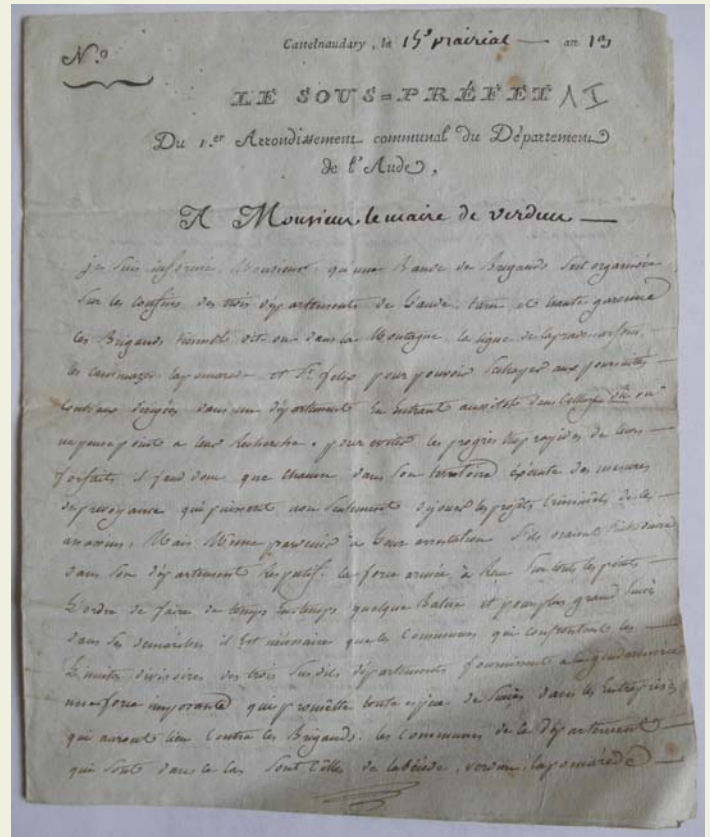 N.º
Castelnaudary, le 15 prairial — an 13
LE SOUS-PRÉFET
Du 1.er Arrondissement communal du Département
de l'Aude,
A Monsieur le maire de verdun —
je suis informé, Monsieur, qu'une Bande de Brigands s'est organisée
Sur les confins des trois départements de L'aude, tarn et haute garonne
les Brigands tiennent dit on dans la Montagne, la ligne de
les cammazes lapomarede et St. felix pour pouvoir Echaper aux poursuites
Contr'eux dirigées dans un département En Entrant aussitôt dans Celluy où on
ne pense point a leur Recherche. pour eviter les progrès trop rapides de leurs
forfaits il faut donc que chacun dans Son territoire éxécute des mesures
de prevoyance qui puissent non Seulement déjouer les projets Criminels de ces
assassins, Mais Même parvenir à Leur arrestation S'ils osaient S'introduire
dans Son département Respectif. la force armée à Reçu Sur tout les points
L'ordre de faire de temps En temps quelque Batue et pour plus grand Succès
dans Ses demarches il Est nécessaire que les Communes qui confrontent les
Limites divisoires des trois Susdits départements fournissent a la gendarmerie
une force imposante qui promette toute espece de Succès dans les Entreprises
qui auront lieu Contre les Brigands. les Communes de ce département
qui Sont dans le Cas Sont Celles de labécède, verdun, lapomarède